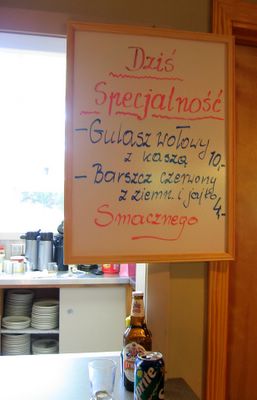 Dziś
Specjalność
- Gulasz wołowy
z kaszą 10,-
- Barszcz czerwony
z ziemn. i jajko
4,-
Smacznego
Sprite